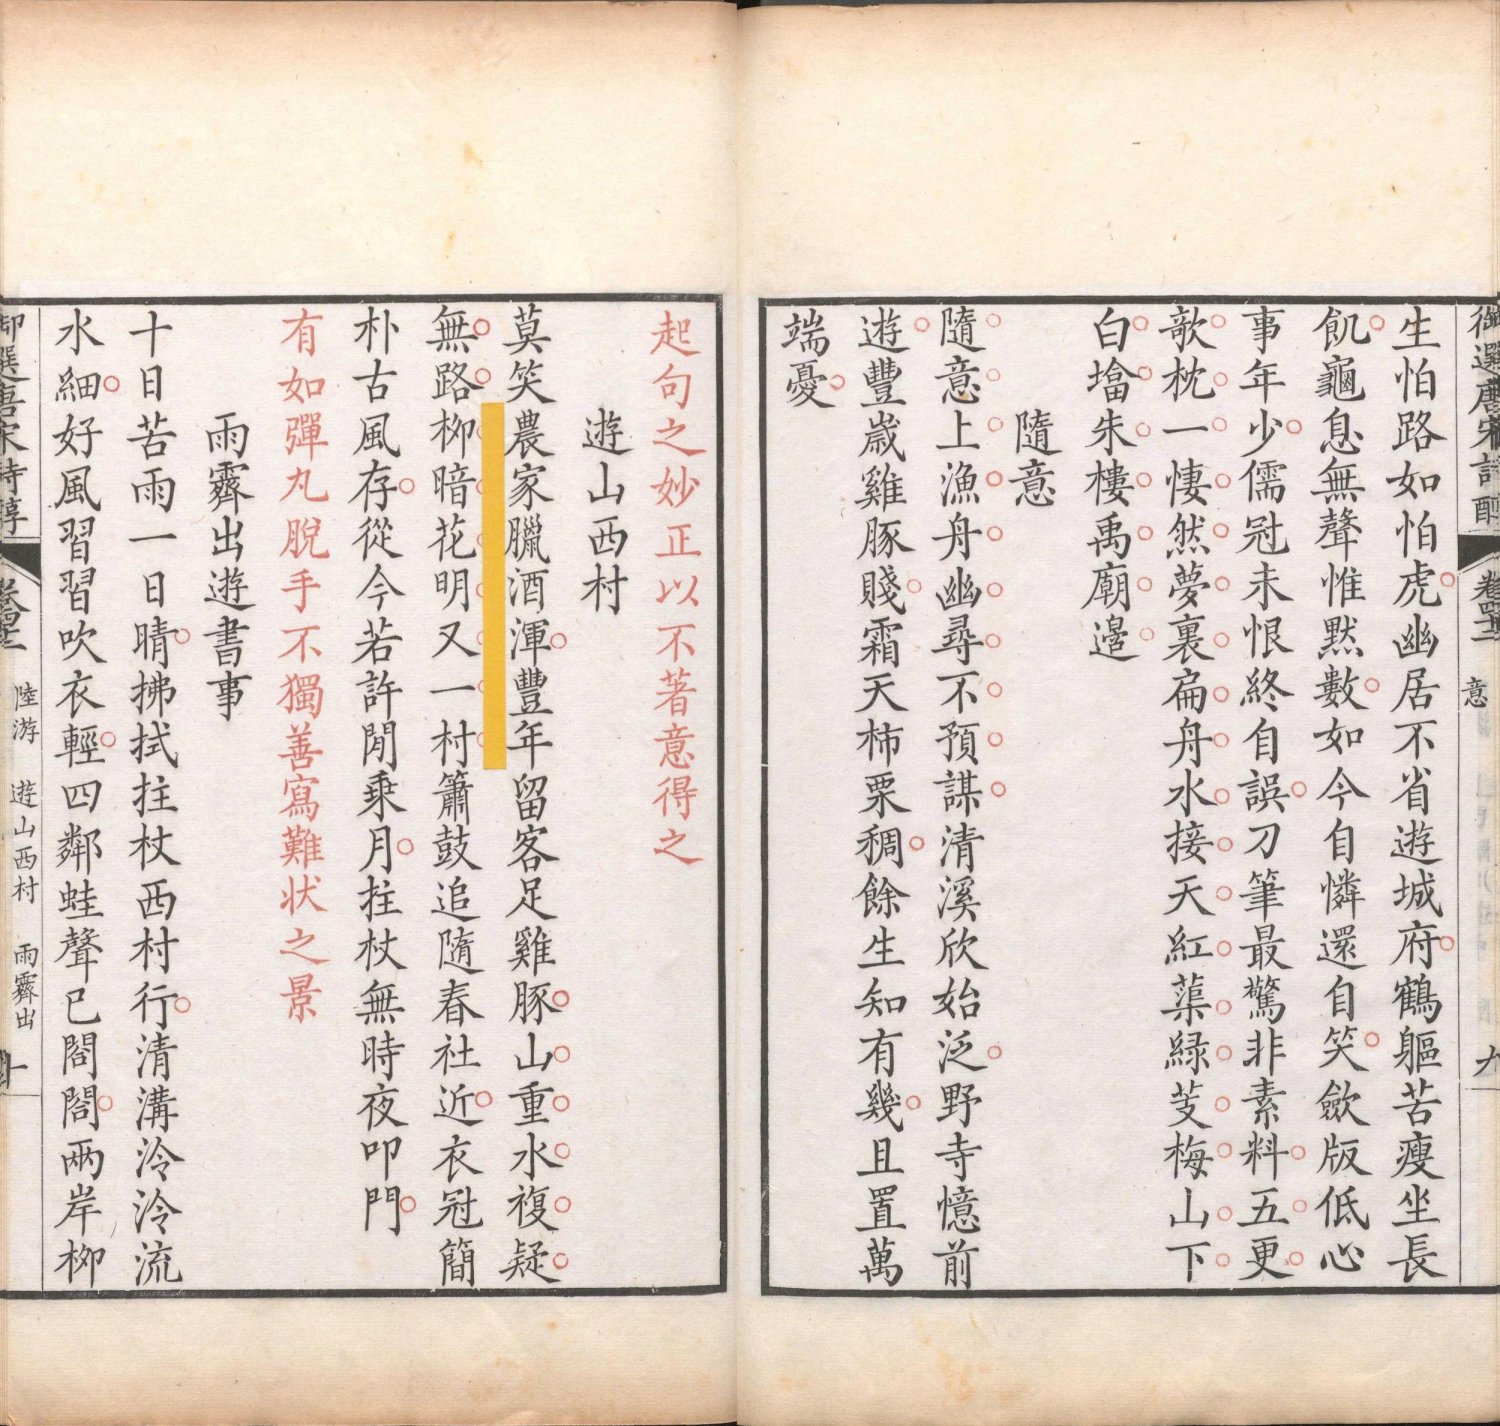 御選唐宋詩醇
卷四十二
意
九
生怕路如怕虎幽居不省遊城府鶴軀苦瘦坐長
飢龜息無聲惟默數如今自憐還自笑歛版低心
事年少儒冠未恨終自誤刀筆最驚非素料五更
欹枕一悽然夢裏扁舟水接天紅蕖綠芰梅山下
白墖朱樓禹廟邉
隨意
隨意上漁舟幽尋不預謀清溪欣始泛野寺憶前
遊豐歲雞豚賤霜天柿栗稠餘生知有幾且置萬
端憂
起句之妙正以不著意得之
遊山西村
莫笑農家臘酒渾豐年留客足雞豚山重水複疑
無路柳暗花明又一村簫鼓追隨春社近衣冠簡
朴古風存從今若許閒乗月拄杖無時夜叩門
有如彈丸脫手不獨善寫難狀之景
雨霽出遊書事
十日苦雨一日晴拂拭拄杖西村行清溝泠泠流
水細好風習習吹衣輕四鄰蛙聲已閤閤兩岸柳
御選唐宋詩醇
陸游 遊山西村 雨霽出